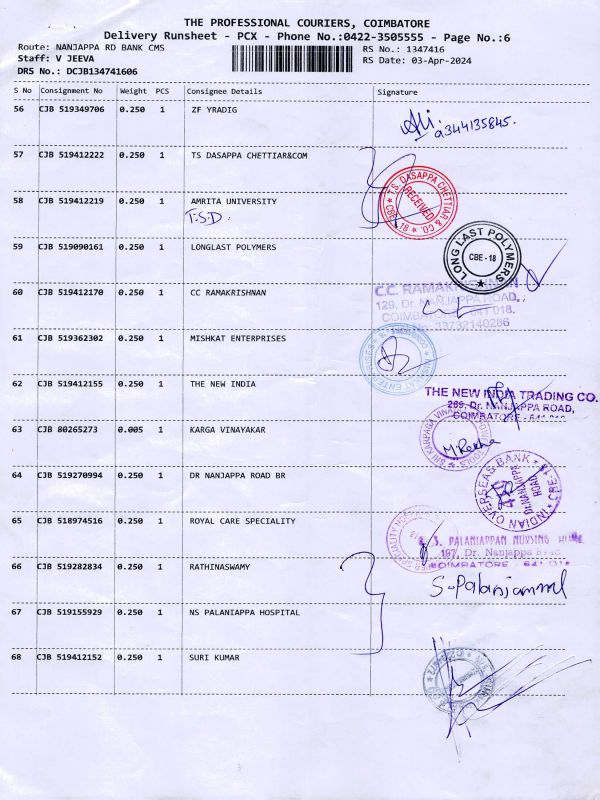 THE PROFESSIONAL COURIERS, COIMBATORE
Delivery Runsheet - PCX - Phone No.:0422-3505555 - Page No.:6
Route: NANJAPPA RD BANK CMS RS No.: 1347416
Staff: V JEEVA RS Date: 03-Apr-2024
DRS No.: DCJB134741606
S No Consignment No Weight PCS Consignee Details Signature
56 CJB 519349706 0.250 1 ZF YRADIG
9344135845.
57 CJB 519412222 0.250 1 TS DASAPPA CHETTIAR&COM
T.S. DASAPPA CHETTIAR & CO.
RECEIVED
CBE-18
58 CJB 519412219 0.250 1 AMRITA UNIVERSITY
T.S.D.
59 CJB 519090161 0.250 1 LONGLAST POLYMERS
LONG LAST POLYMERS
CBE - 18
60 CJB 519412170 0.250 1 CC RAMAKRISHNAN
C.C. RAMAKRISHNAN
129, Dr. NANJAPPA ROAD,
COIMBATORE - 641 018.
33732140286
61 CJB 519362302 0.250 1 MISHKAT ENTERPRISES
MISHKAT ENTERPRISES
62 CJB 519412155 0.250 1 THE NEW INDIA
THE NEW INDIA TRADING CO.
269, Dr. NANJAPPA ROAD,
COIMBATORE - 641 018
63 CJB 80265273 0.005 1 KARGA VINAYAKAR
SRI KARPAGA VINAYAGA
M. Rekha
64 CJB 519270994 0.250 1 DR NANJAPPA ROAD BR
INDIAN OVERSEAS BANK
Dr. NANJAPPA
ROAD
CBE-18
65 CJB 518974516 0.250 1 ROYAL CARE SPECIALITY
S. PALANIAPPAN NURSING HOME
197, Dr. Nanjappa Road
COIMBATORE - 641 018
66 CJB 519282834 0.250 1 RATHINASWAMY
S. Palaniammal
67 CJB 519155929 0.250 1 NS PALANIAPPA HOSPITAL
68 CJB 519412152 0.250 1 SURI KUMAR